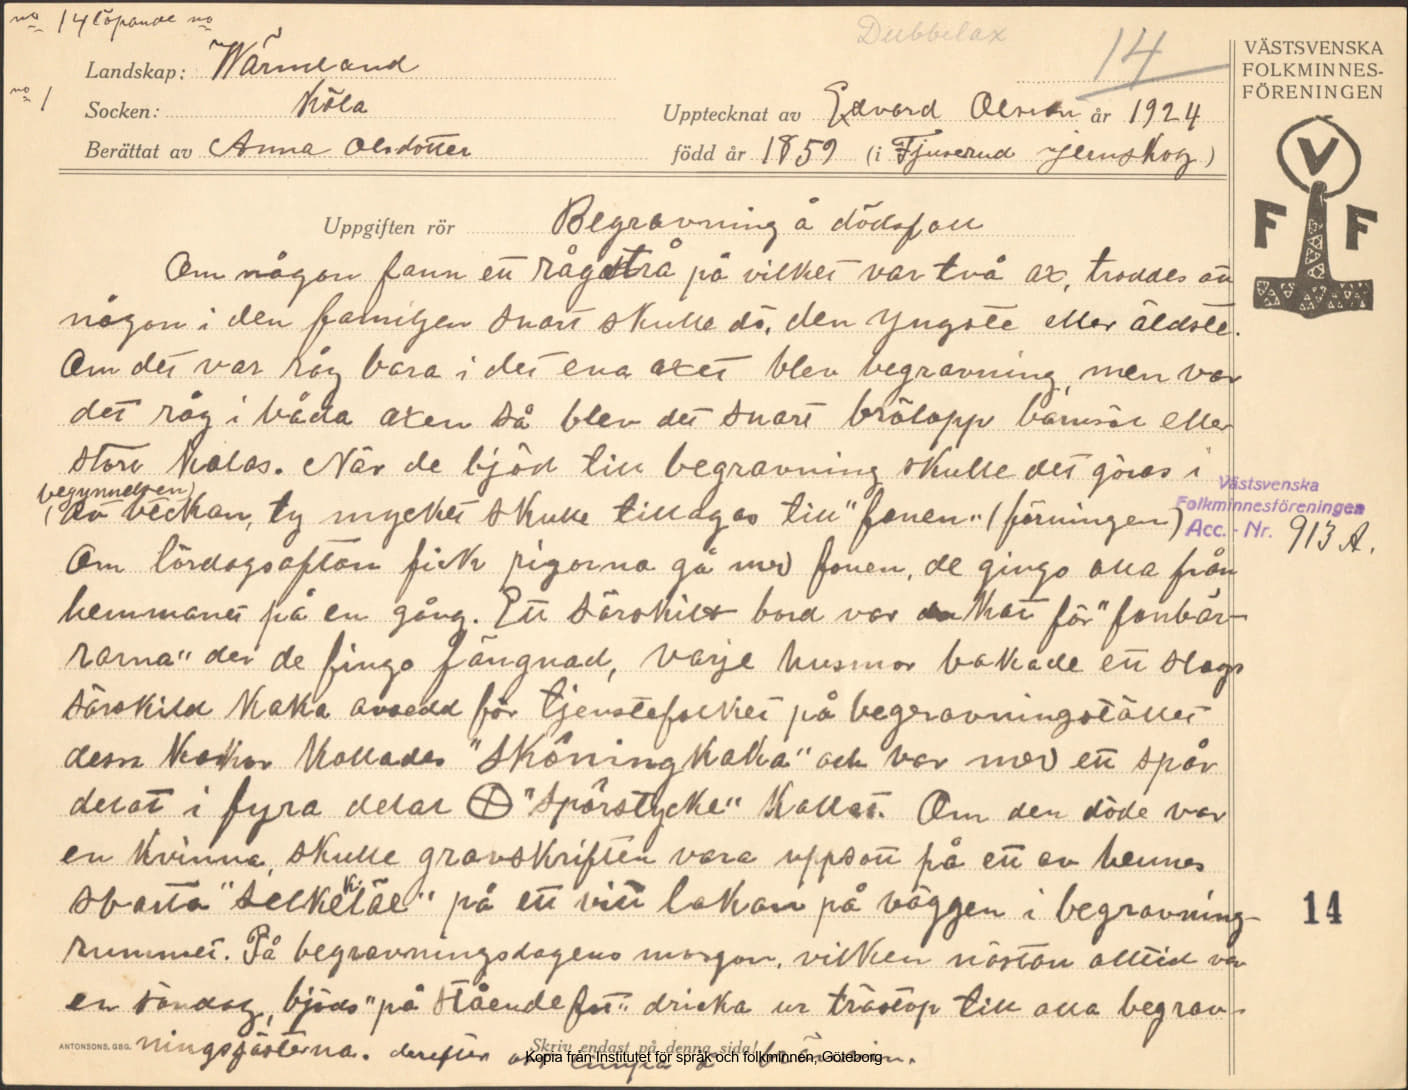 no 14 löpande no
Dubbelax
14
Landskap: Wärmland
no 1
Socken: Köla
Upptecknat av Edvard Olsson år 1924
Berättat av Anna Olsdotter
född år 1859 (i Fjuserud Jernskog)
VÄSTSVENSKA
FOLKMINNES-
FÖRENINGEN
V
F F
Uppgiften rör Begravning å dödsfall
Om någon fann ett rågstrå på vilket var två ax, troddes att
någon i den familjen snart skulle dö, den yngste eller äldste.
Om det var råg bara i det ena axet blev begravning, men var
det råg i båda axen så blev det snart brölopp barnsöl eller
stort kalas. När de bjöd till begravning skulle det göras i
begynnelsen
av veckan, ty mycket skulle tillagas till "fonen" (förningen)
Om lördagsaftan fick pigorna gå med fonen, de gingo alla från
hemmanet på en gång. Ett särskilt bord var dukat för "fonbär-
rarna" der de fingo fängnad, varje husmor bakade ett slags
särskild kaka avsedd för tjenstefolket på begravningstället
dessa kakor kallades "Skåningkaka" och var med ett spår
delat i fyra delar "Spårstycke" kallat. Om den döde var
en kvinna, skulle gravskriften vara uppsatt på ett av hennes
svarta "selkekläe" på ett vitt lakan på väggen i begravning-
rummet. På begravningsdagens morgon, vilken nästan alltid var
en söndag, bjöds "på stående fot" dricka ur trästop till alla begrav-
ningsgästerna. derefter
Västsvenska
Folkminnesföreningen
Acc. - Nr. 913 A.
14
ANTONSONS, GBG.
Skriv endast på denna sida!
Kopia från Institutet för språk och folkminnen, Göteborg